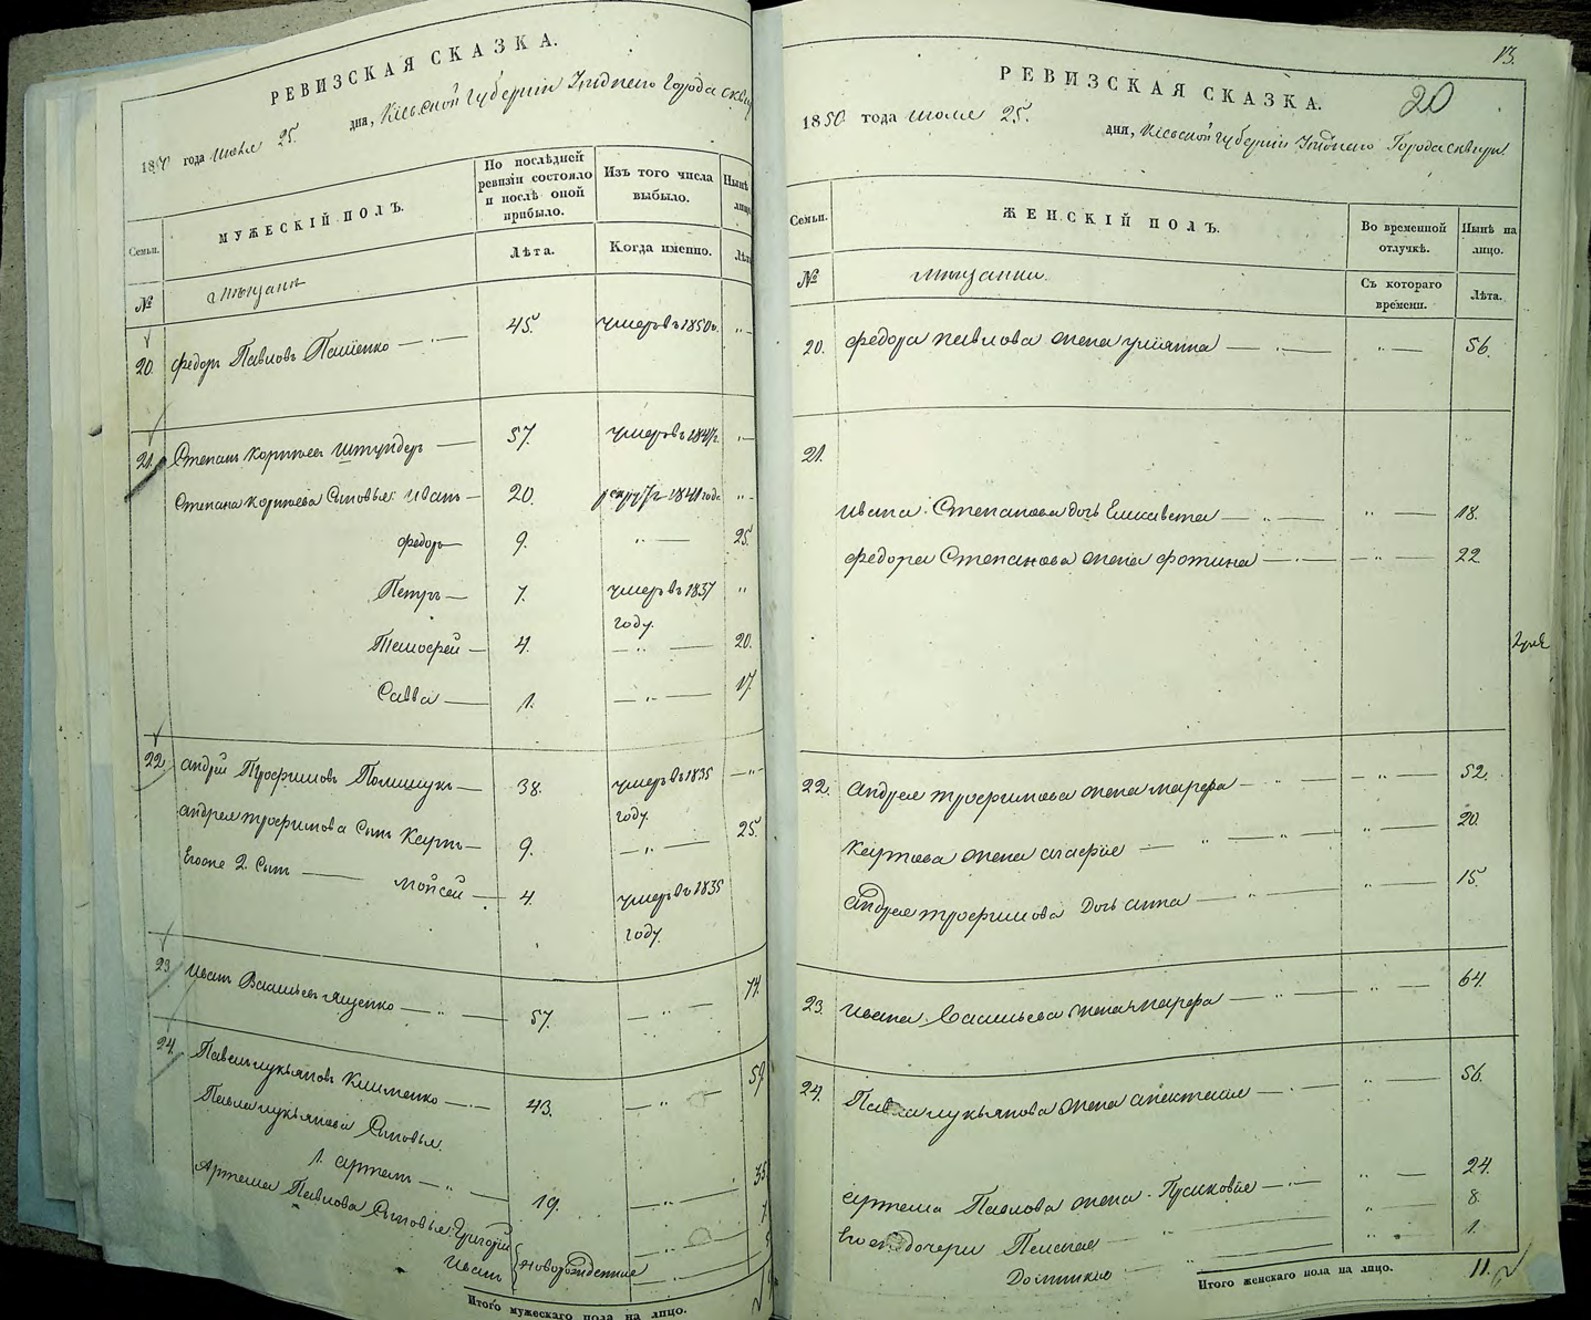 РЕВИЗСКАЯ СКАЗКА.
1850 года июля 25. дня, Кіевской губерніи Уѣднаго города Сквиры
Семьи.
МУЖЕСКІЙ ПОЛЪ.
По послѣдней
ревизіи состояло
и послѣ оной
прибыло.
Изъ того числа
выбыло.
Нынѣ
лицо
Лѣта.
Когда именно.
Лѣта
№
Мѣщане
20. Федоръ Павловъ Пащенко 45. умеръ въ 1850 г. "
21. Степанъ Корнѣевъ 57. умеръ въ 1847 г. "
Степана Корнѣева Сыновья: Иванъ 20. 1841 года "
Федоръ 9. " 25.
Петръ 7. умеръ въ 1837 "
году.
Тимофей 4. " 20.
Савва 1. " 17
22. Андрей Трофимовъ Полищукъ 38. умеръ въ 1835 "
году.
Андрея Трофимова Сынъ Карпъ 9. " 25.
Егоже 2. Сынъ Мойсей 4. умеръ въ 1835
году.
23. Иванъ Васильевъ Ященко 57. " 74.
24. Павелъ Лукьяновъ Клименко 43. " 59
Павла Лукьянова Сыновья.
1. Артемъ 19. " 35
Артема Павлова Сыновья: Григорій
Иванъ новорожденные "
Итого мужескаго пола на лицо.
13.
РЕВИЗСКАЯ СКАЗКА.
20
1850 года июля 25. дня, Кіевской губерніи Уѣднаго Города Сквиры.
Семьи.
ЖЕНСКІЙ ПОЛЪ.
Во временной
отлучкѣ.
Нынѣ на
лицо.
№
Мѣщанки.
Съ котораго
времени.
Лѣта.
20. Федора Павлова жена Ульянна " 56.
21.
Ивана Степанова дочь Елисавета " 18.
Федора Степанова жена Фотина " 22
22. Андрея Трофимова жена Марфа " 52.
Карпова жена Агафія " 20.
Андрея Трофимова Дочь Анна " 15.
23. Ивана Васильева жена Марфа " 64.
24. Павла Лукьянова жена Анастасія " 56.
Артема Павлова жена " 24.
Его дочери Пелагея " 8.
Домникія " 1.
Итого женскаго пола на лицо. 11.